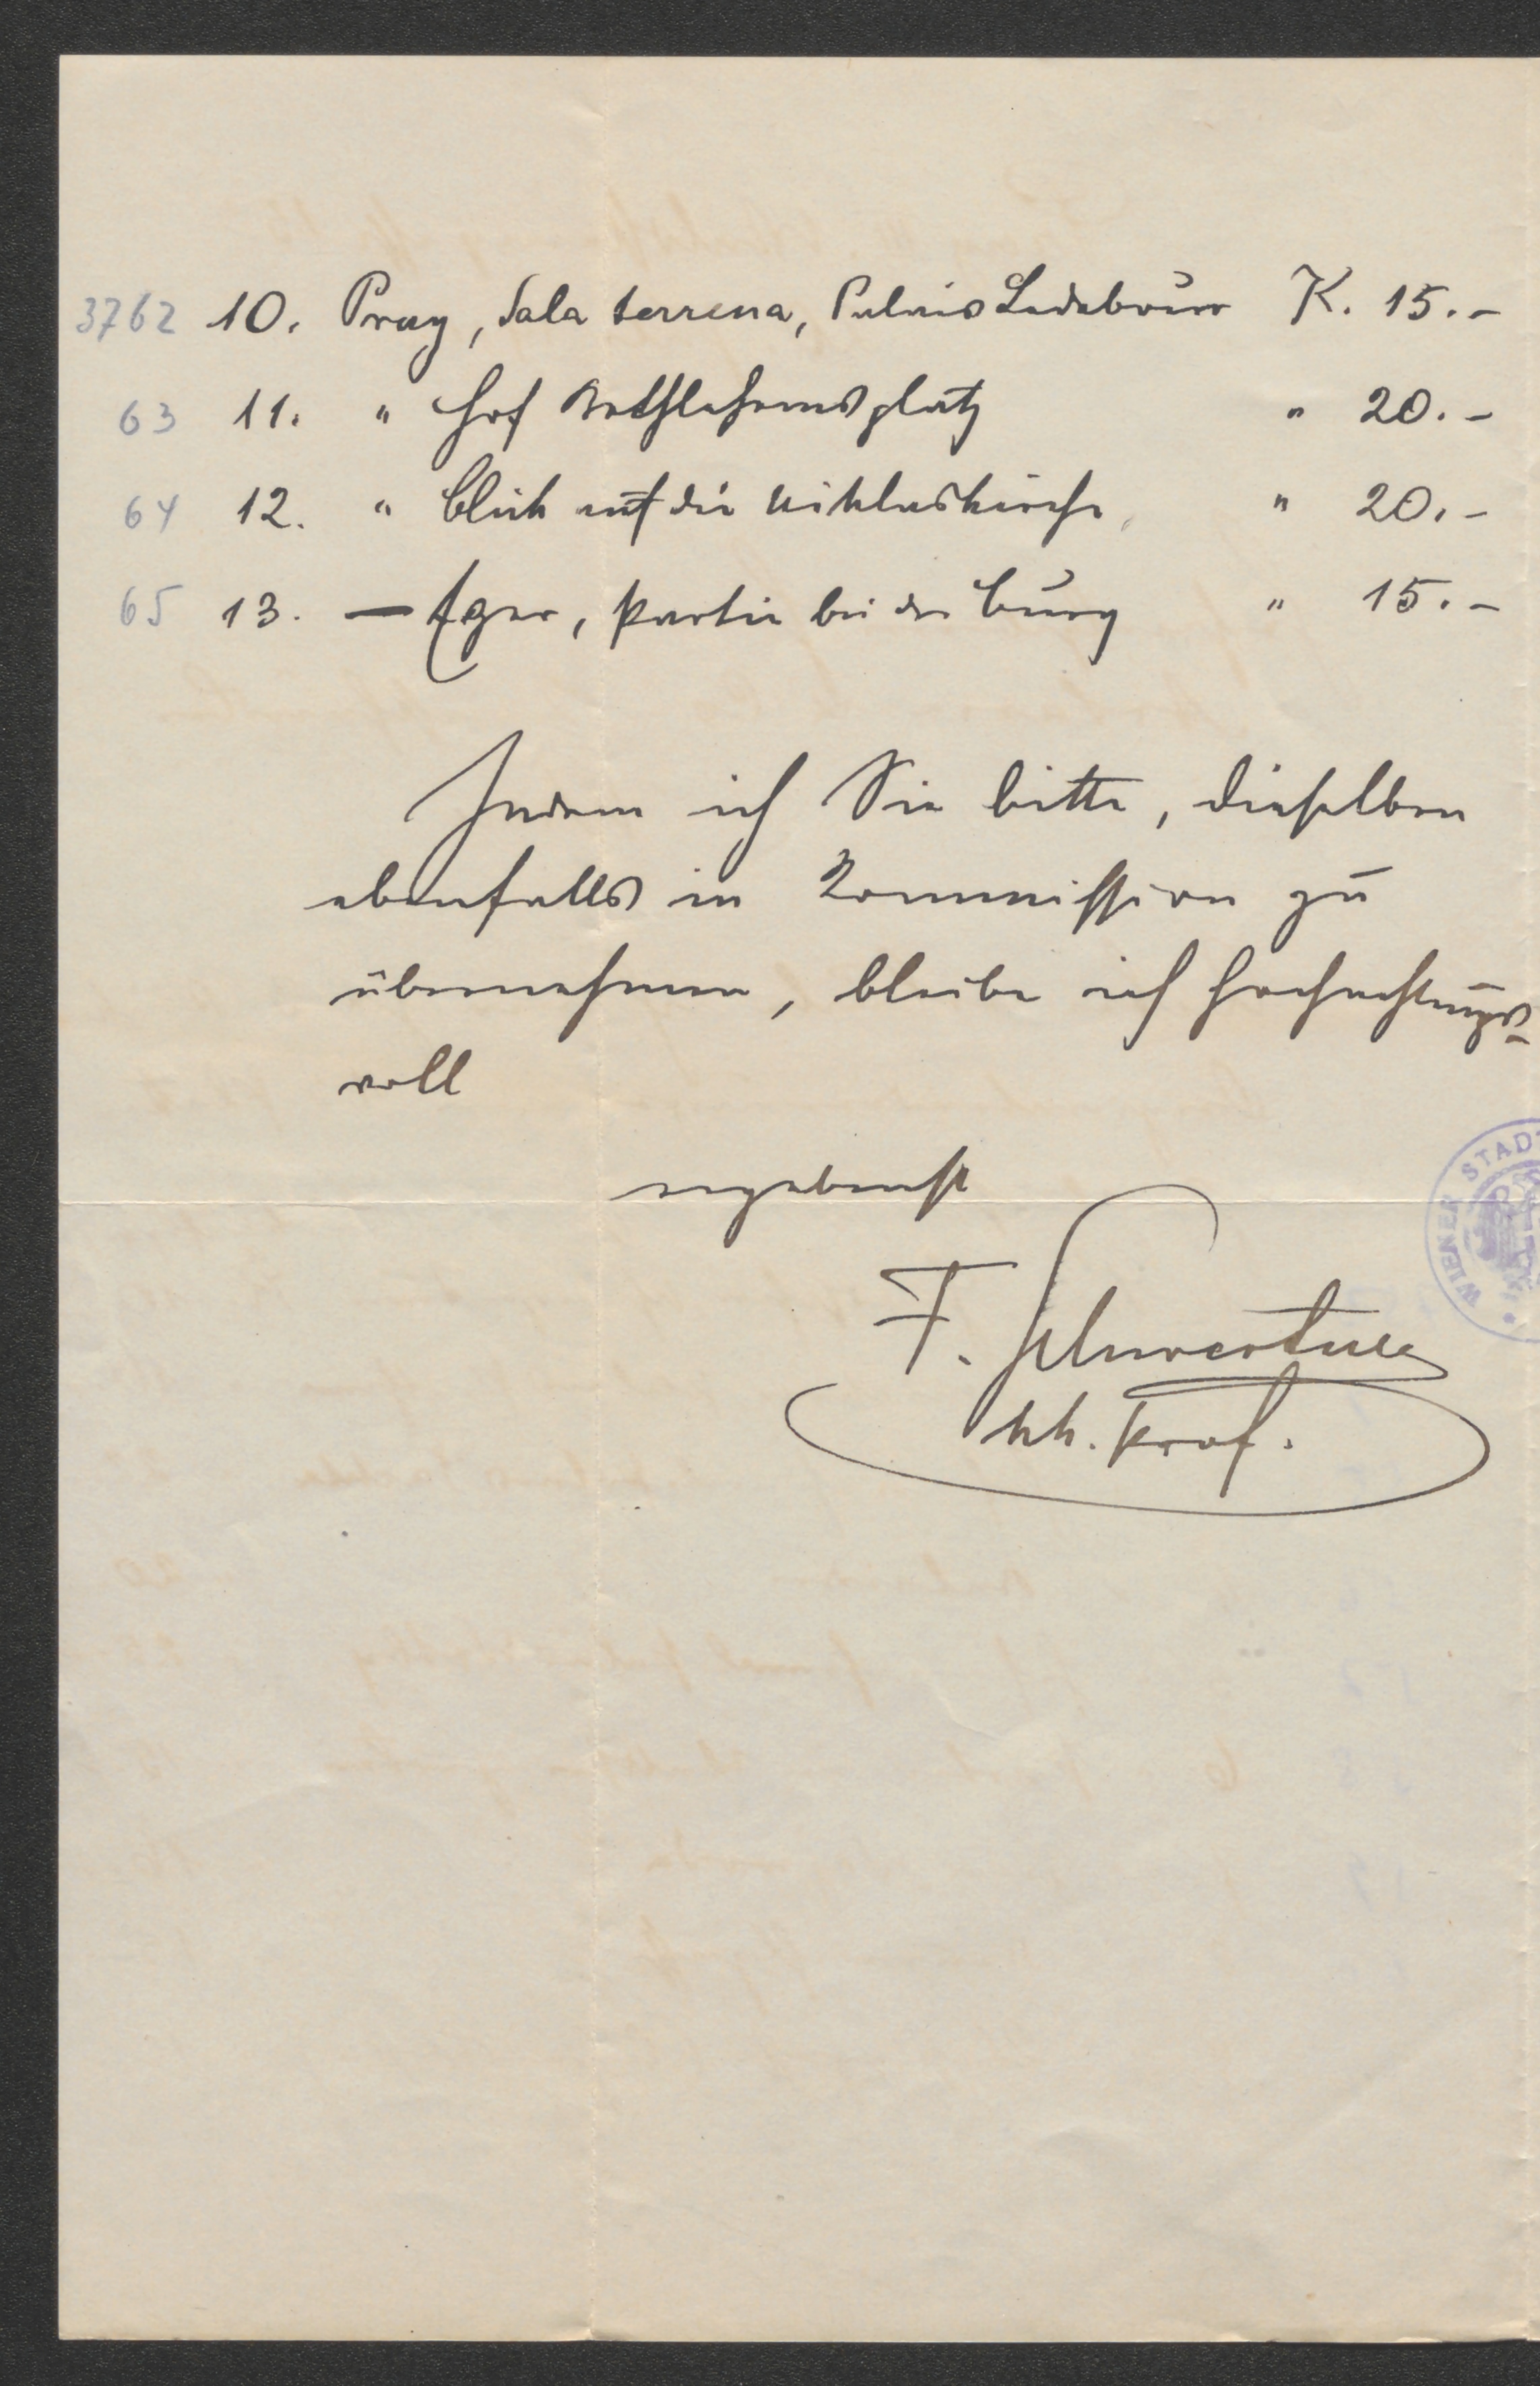 3762 10. Prag, Sala terrena, Palais Ledebour K. 15.-
63 11. " Hof Bethlehemsplatz " 20.-
64 12. " Blick auf die Niklaskirche " 20.-
65 13. — Eger, Partie bei der Burg " 15.-
Indem ich Sie bitte, dieselben
ebenfalls in Kommission zu
übernehmen, bleibe ich hochachtungs-
voll
ergebenst
F. Schwertner
kk. Prof.
WIENER STAD